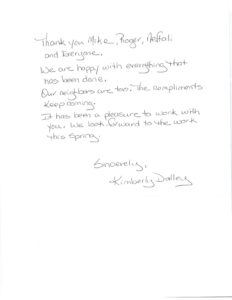 Thank you Mike, Roger, Neftali
and Everyone.
We are happy with everything that
has been done.
Our neighbors are too. The compliments
keep coming.
It has been a pleasure to work with
you. We look forward to the work
this Spring.
Sincerely,
Kimberly Dalley